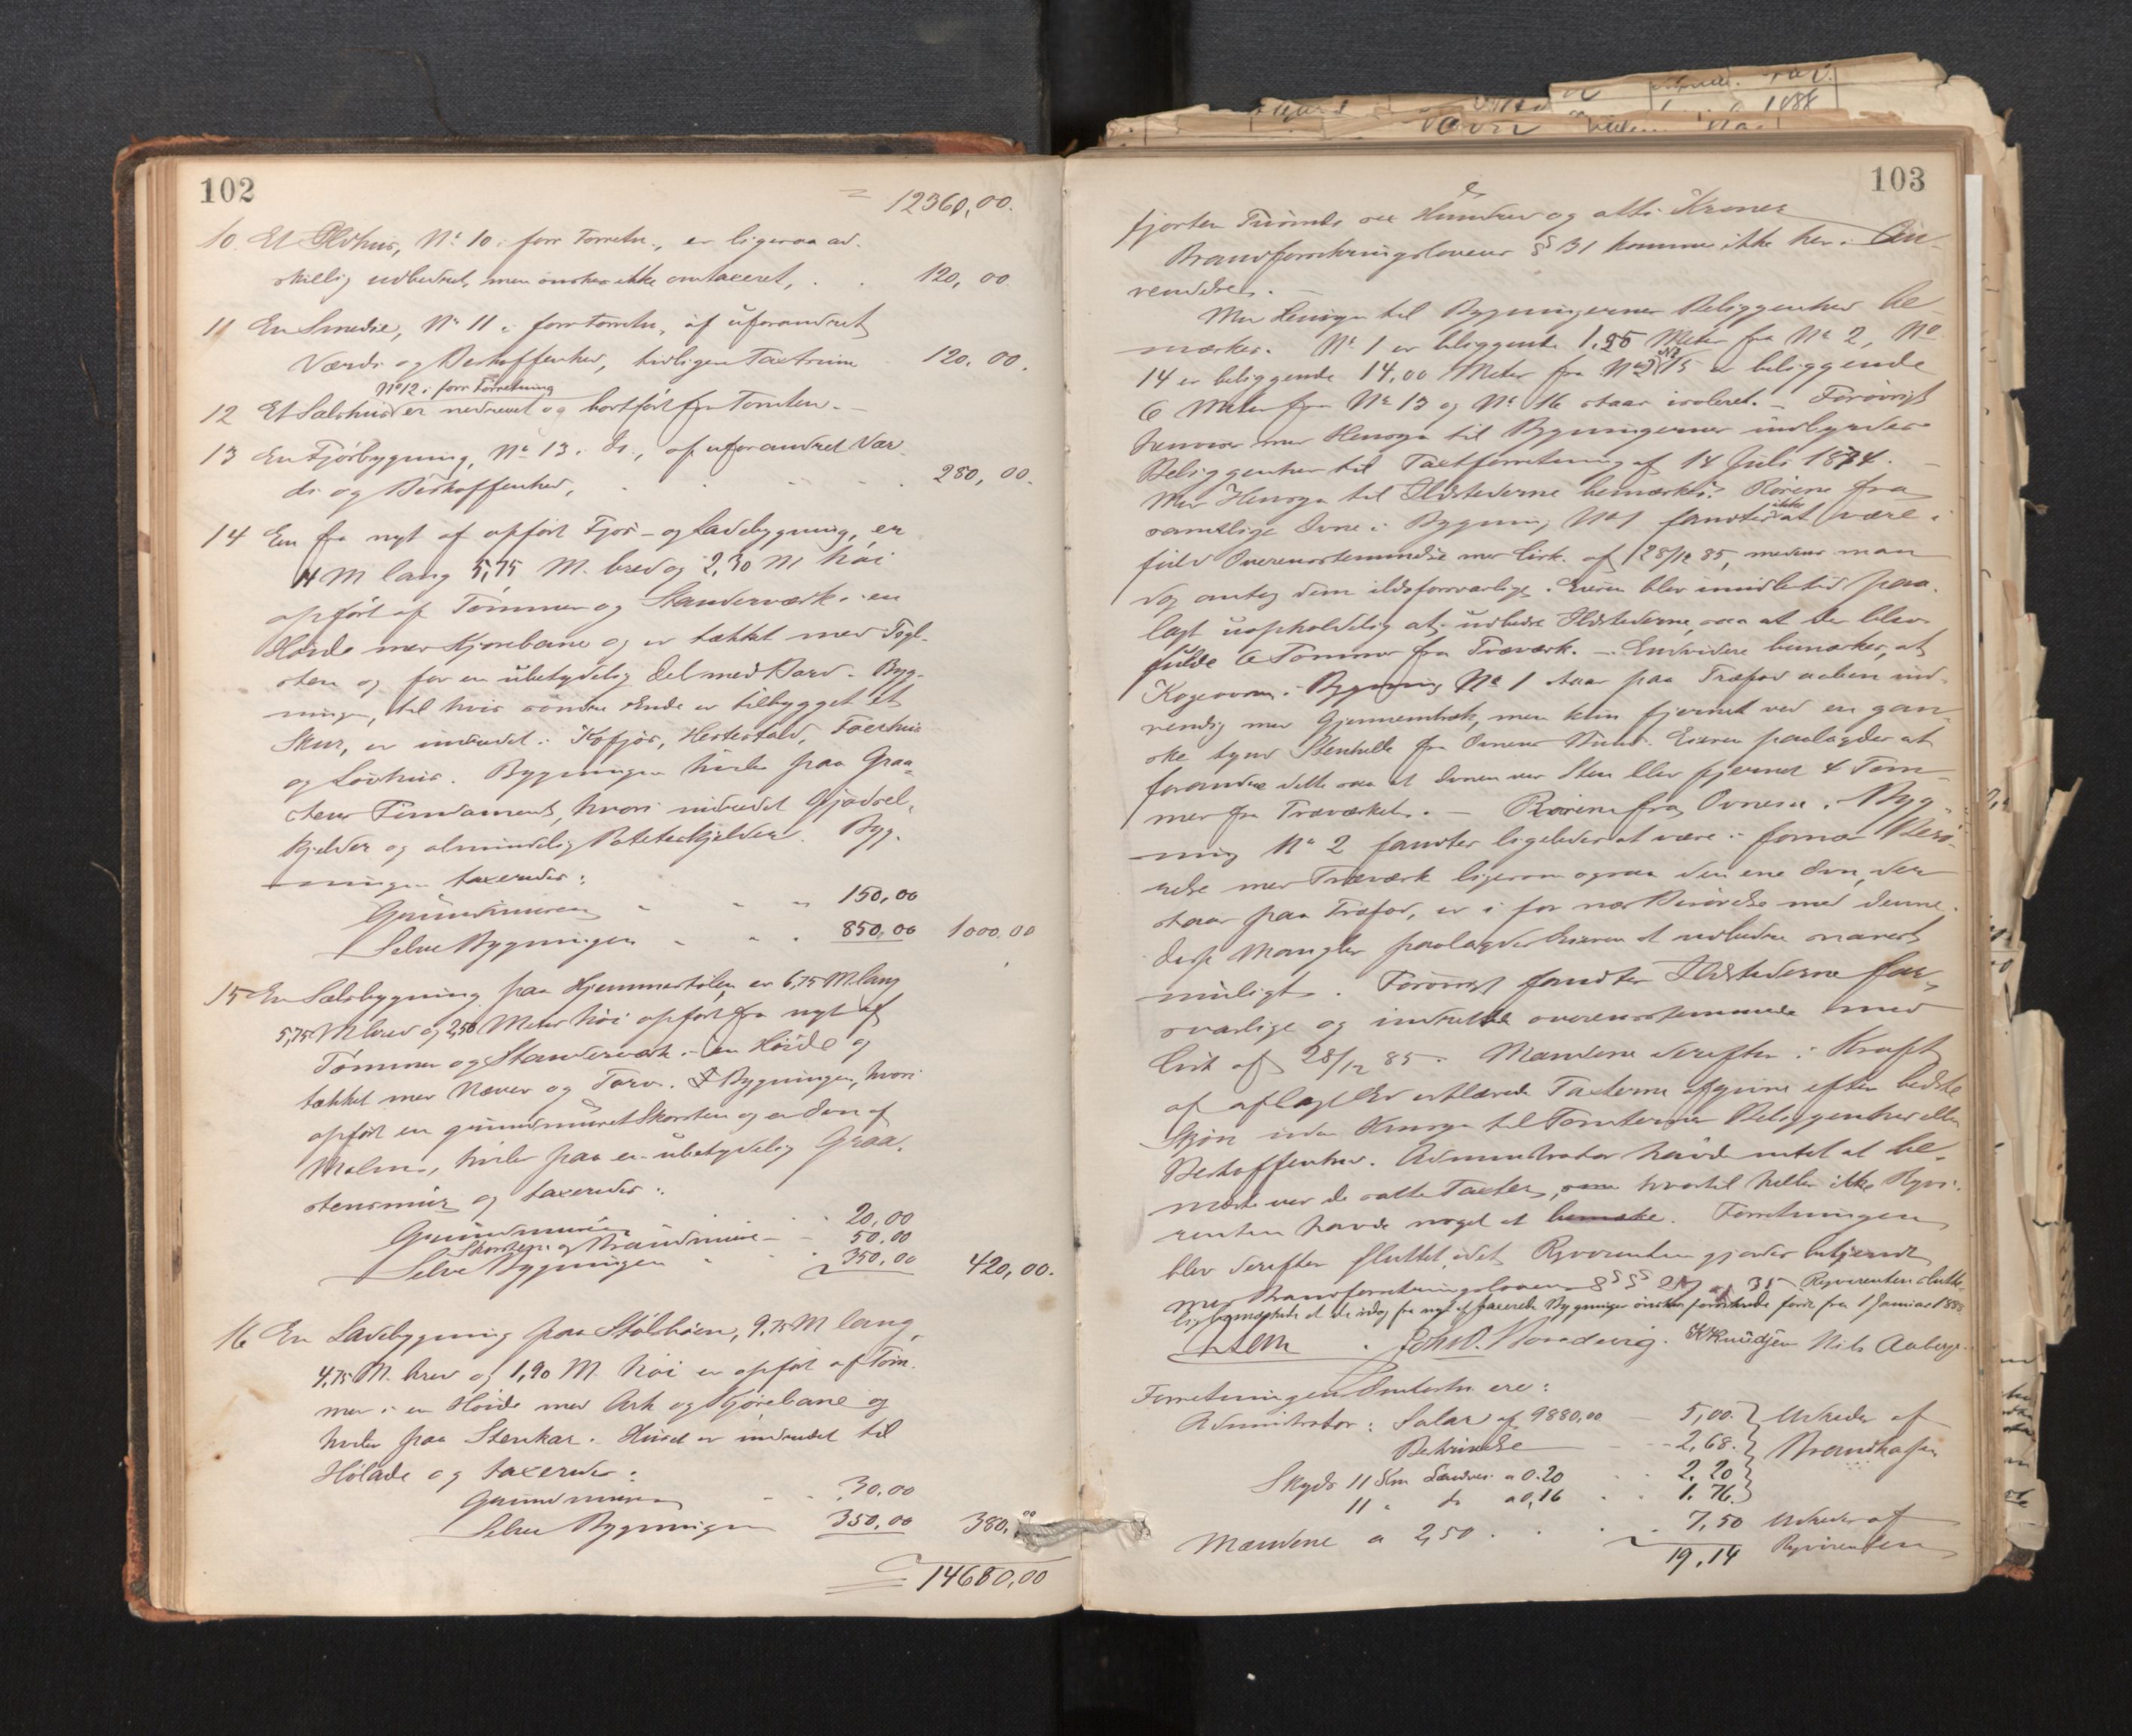 102
12360,00.
10. Et Ildhus, No 10 i forr Forretn., er ligesaa ad-
skillig udbedret, men ønskes ikke omtaxeret, . . 120,00.
11 En Smedie, No 11 i forr Forretn., af uforandret
Værdi og Beskaffenhed, tidligere Taxtsum 120.00.
No 12 i forr Forretning
12 Et Salshus er nedrevet og bortført fra Tomten.
13 En Fjøsbygning, No 13 i do., af uforandret Vær-
di og Beskaffenhed, 280,00.
14 En fra nyt af opført Fjøs- og Ladebygning, er
14 M lang 5,75 M. bred og 2,30 M høi
opført af Tømmer og Standerværk i en
Høide med Kjørebane og er tækket med Tagl-
sten og for en ubetydelig Del med Bord. Byg-
ningen, til hvis søndre Ende er tilbygget et
Skur, er indredet i Kofjøs, Hestestald, Faarhus
og Løvhus. Bygningen hviler paa Graa-
stens Fundament, hvori indredet Gjødsel-
kjelder og almindelig Potetkjelder. Byg-
ningen taxeredes:
Grundmuren 150,00
Selve Bygningen 850,00 1000.00
15 En Sælsbygning paa Hjemmestølen er 6,75 M lang
5,75 M bred og 2,50 Meter høi opført fra nyt af
Tømmer og Standerværk i en Høide og
tækket med Næver og Torv. I Bygningen, hvori
opført en grundmuret Skorsten og en Ovn af
Malm, hviler paa en ubetydelig Graa-
stensmur og taxeredes:
Grundmuren 20,00
Skorsten og Brandmure 50,00
Selve Bygningen 350,00 420,00.
16 En Ladebygning paa Stølshøien, 9,75 M lang,
4,75 M. bred og 1,90 M. høi er opført af Tøm-
mer i en Høide med Ark og Kjørebane og
hviler paa Stenkar. Huset er indredet til
Hølade og taxeredes:
Grundmuren 30,00
Selve Bygningen 350,00 380,00
14680,00
103
fjorten Tusinde sex Hundrede og otti Kroner
Brandforsikringslovens § 31 kommer ikke her i An-
vendelse.
Med Hensyn til Bygningernes Beliggenhed be-
mærkes: No 1 er beliggende 1.25 Meter fra No 2, No
14 er beliggende 14,00 Meter fra No 2, No 15 er beliggende
6 Meter fra No 13 og No 16 staar isoleret. Forøvrigt
henvises med Hensyn til Bygningernes indbyrdes
Beliggenhed til Taxtforretning af 14 Juli 1874.
Med Hensyn til Ildstederne bemærkes: Rørene fra
samtlige Ovne i Bygning No 1 fandtes ikke at være i
fuld Overensstemmelse med Cirk. af 28/12 85, medens man
dog antog dem ildsforsvarlige. Eieren blev imidlertid paa-
lagt uopholdelig at udbedre Ildstederne, saa at der blev
fulde 6 Tommer fra Træværk. Endvidere bemærkes, at
Kogeovnen i Bygning No 1 staar paa Træfod aaben ind-
vendig med Gjennemtræk, men kun fjernet ved en gan-
ske tynd Stenhelle fra Ovnens Bund. Eieren paalagdes at
forandre dette saa at Ovnen ved Sten blev fjernet 4 Tom-
mer fra Træværket. Rørene fra Ovnene i Byg-
ning No 2 fandtes ligeledes at være i fornær Berø-
relse med Træværk ligesom ogsaa den ene Ovn, der
staar paa Træfod, er i for nær Berørelse med denne.
Disse Mangler paalagdes Eieren at udbedre snarest
muligt. Forøvrigt fandtes Ildstederne for-
svarlige og indrettede overensstemmende med
Cirk af 28/12 85. Mændene derefter i Kraft
af aflagt Ed erklærede Taxterne afgivne efter bedste
Skjøn uden Hensyn til Tomternes Beliggenhed eller
Beskaffenhed. Administrator havde intet at be-
mærke ved de satte Taxter, hvortil heller ikke Rekvi-
renten havde noget at bemærke. Forretningen
blev derefter sluttet, idet Rekvirenten gjordes bekjendt
med Brandforsikringslovens §§ 29 og 35. Rekvirenten slutte-
lig bemærkede at de idag fra nyt af taxerede Bygninger ønskes forsikrede først fra 1 Januar 1888
K Knudsen Nils Aaberge
Forretningens Omkostn. ere:
Administrator: Salar af 9880,00 5,00. Udredes af
Betrindelse 2,68. Brandkassen
Skyds 11 Km Landvei a 0.20 2.20
11 " do a 0,16 1.76.
Mændene a 2,50 7,50 Udredes af
19,14 Rekvirenten